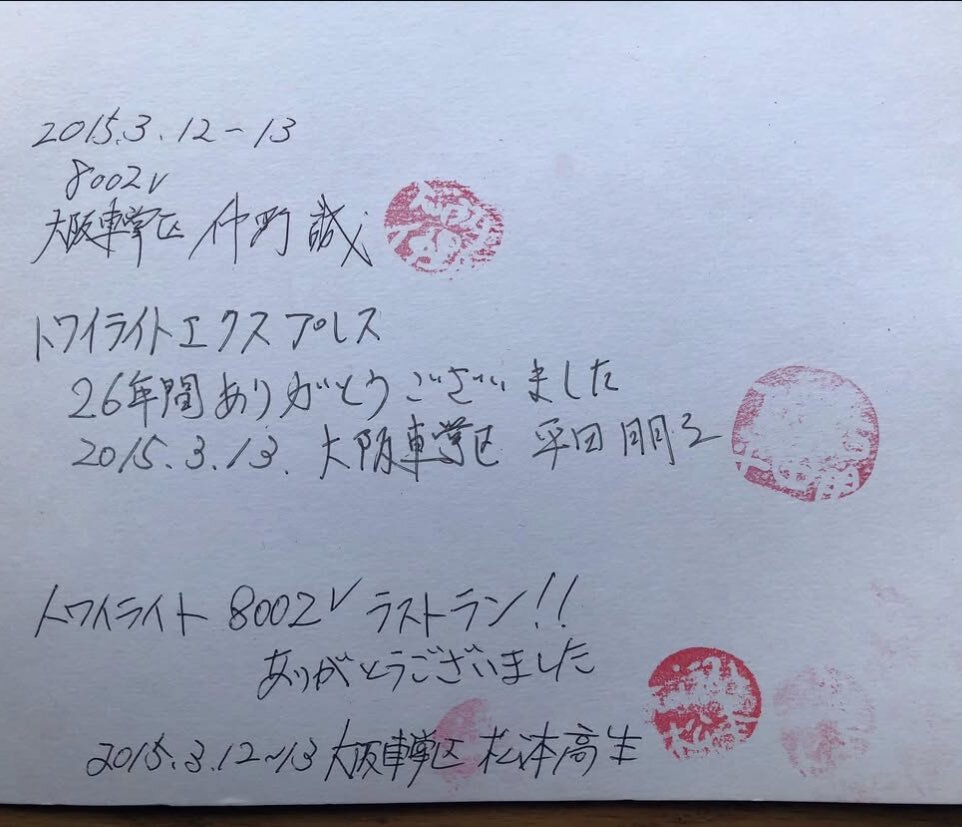 2015.3.12-13
8002レ
大阪車掌区 仲野 誠
トワイライトエクスプレス
26年間ありがとうございました
2015.3.13. 大阪車掌区 平田
トワイライト 8002レ ラストラン!!
ありがとうございました
2015.3.12~13 大阪車掌区 松本高生